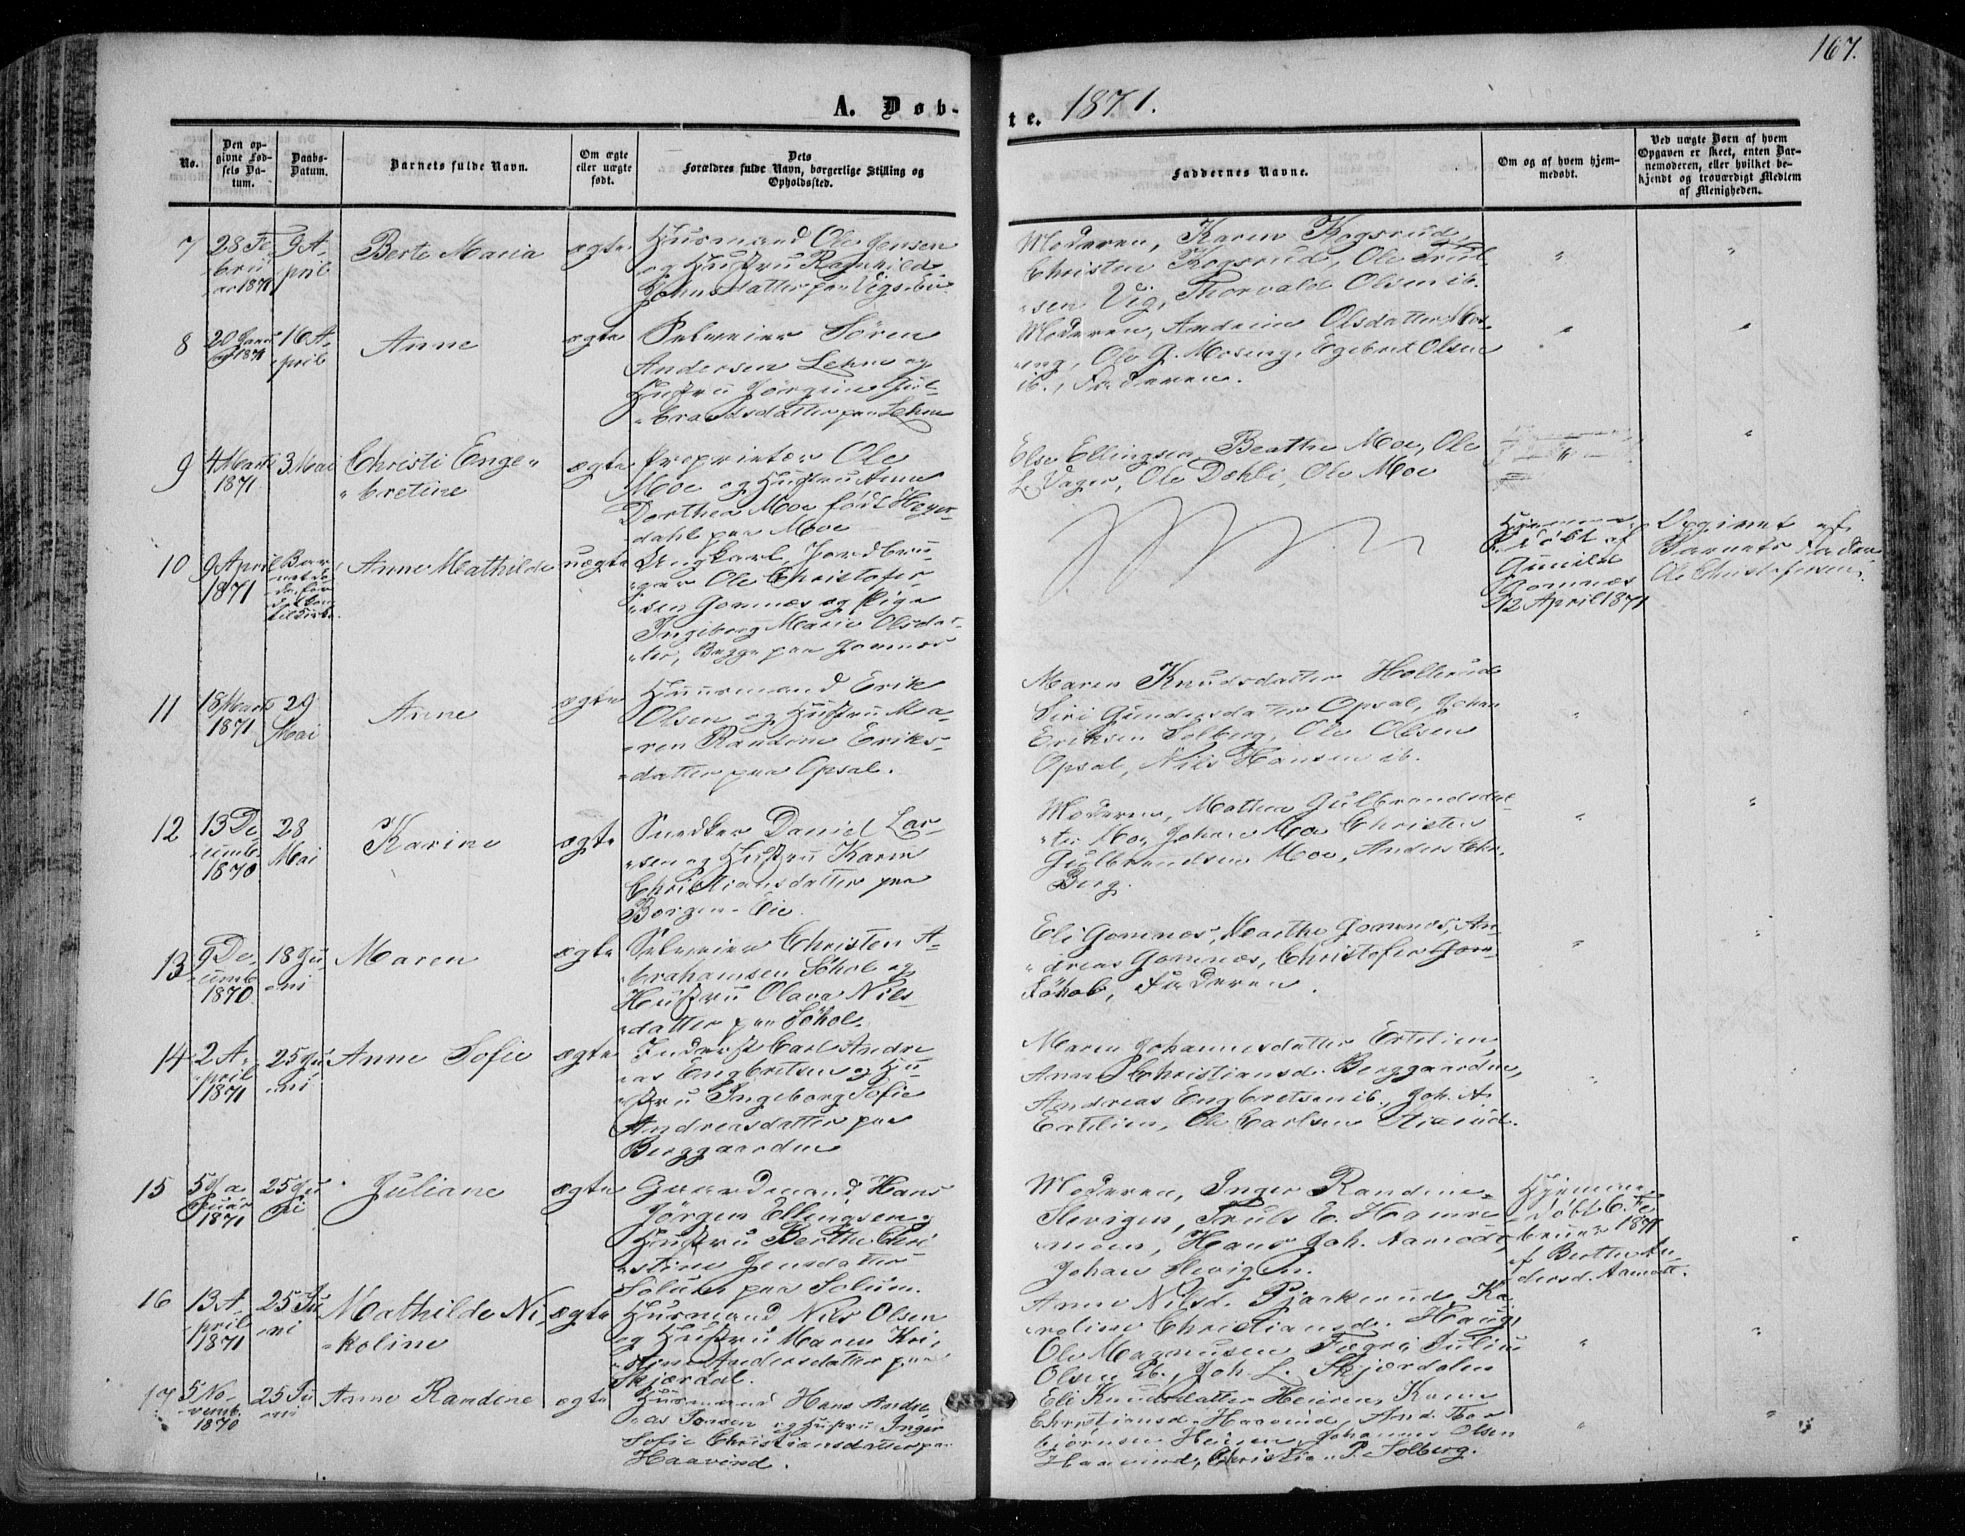 167.
A. Døb-
te. 1871.
No.
Den op-
givne Fød-
sels Da-
tum.
Daabs-
Datum.
Barnets fulde Navn.
Om ægte
eller uægte
født.
Dets
Forældres fulde Navn, borgerlige Stilling og
Opholdssted.
Faddernes Navne.
Om og af hvem hjem-
medøbt.
Ved uægte Børn af hvem
Opgaven er skeet, enten Bar-
nemoderen, eller hvilket be-
kjendt og troværdigt Medlem
af Menigheden.
7
28 Fe-
bru
ar 1871
9 A-
pril
Berte Maria
ægte
Husmand Ole Jensen
og Hustru Ragnhild
Johnsdatter paa
Moderen, Karen Kogsrud,
Christen Kogsrud, Ole Trul
sen Vig, Thorvald Olsen ib.
8
20 Janu
1871
16 A-
pril
Anne
ægte
Selveier Sören
Andersen Lehne og
Hustru Jörgine Gul-
brandsdatter paa Lehne
Moderen, Andrine Olsdatter Mos-
eng, Ole G. Moseng, Egebret Olsen
ib., Faderen.
9
4 Marts
1871
3 Mai
Christi Enge-
bretine
ægte
Proprietær Ole
Moe og Hustru Anne
Dorthea Moe født Heyer-
dahl paa Moe
Else Ellingsen, Beathe Moe, Ole
L. Vager, Ole Dæhli, Ole Moe
10
9 April
1871
Bar
net dö-
de för
Anne Mathilde
uægte
Ungkarl, Jordbru-
ger Ole Christofer-
sen Gomnæs og Pige
Ingeborg Marie Olsdat-
ter, Begge paa Gomnæs
Hjemme-
döbt af
Gunild
Gomnæs
12 April 1871
Opgivet af
Barnets Fader
Ole Christofersen
11
18 Marts
1871
29
Mai
Anne
ægte
Huusmand Erik
Olsen og Hustru Ma-
ren Randine Eriks-
datter paa Opsal.
Maren Knudsdatter Hollerud
Siri Gundersdatter Opsal, Johan
Eriksen Solberg, Ole Olsen
Opsal, Nils Hansen ib.
12
13 De-
cemb.
1870
28
Mai
Karine
ægte
Snedker Daniel Lar-
sen og Hustru Karen
Christiansdatter paa
Borgen-Eie.
Moderen, Mathea Gulbrandsdat-
ter Moe, Johan Moe Christen
Gulbrandsen Moe, Anders Chr.
Berg.
13
9 De-
cemb
1870
18 Ju-
ni
Maren
ægte
Selveier Christen A-
brahamsen Söhol og
Hustru Olava Nils-
datter paa Söhol.
Eli Gomnæs, Marthe Gomnæs, An-
dreas Gomnæs, Christofer Gom-
Söhol, Faderen.
14
2 A-
pril
1871
25 Ju-
ni
Anne Sofie
ægte
Inderst Carl Andre-
as Engebretsen og Hu-
stru Ingeborg Sofie
Andreasdatter paa
Berggaarden
Maren Johannesdatter Ertelien,
Anne Christiansd. Berggaarden,
Andreas Engbretsen ib., Joh. A.
Ertelien, Ole Carlsen
15
5 Ja
nuar
1871
25 Ju
ni
Juliane
ægte
Gaardmand Hans
Jörgen Ellingsen og
Hustru Berthe Chri
stine Jensdatter
Solum paa Solum.
Moderen, Inger Randine
Slevigen, Truls E. Hamre
moen, Hans Joh. Aamodt,
Johan Slevigen.
Hjemme-
döbt 6. Fe
bruar 1871
af Berthe An-
dersd. Aamodt.
16
13 A-
pril
1871
25 Ju
ni
Mathilde Ni-
koline
ægte
Husmand Nils Olsen
og Hustru Maren Kri-
stine Andersdatter paa
Skjærdal.
Anne Nilsd. Ka
roline Christiansd. Haug,
Ole Magnusen Fægri, Julius
Olsen ib., Joh. L. Skjærdalen
17
5 No-
vemb.
1870
25 Ju
ni
Anne Randine
ægte
Husmand Hans Andre
as Jonsen og Hustru Inger
Sofie Christiansdatter paa
Haavind.
Eli Knudsdatter Heieren, Karen
Christiansd. Haavind, And. Tor
björnsen Heieren, Johannes Olsen
Haavind, Christian P. Solberg.